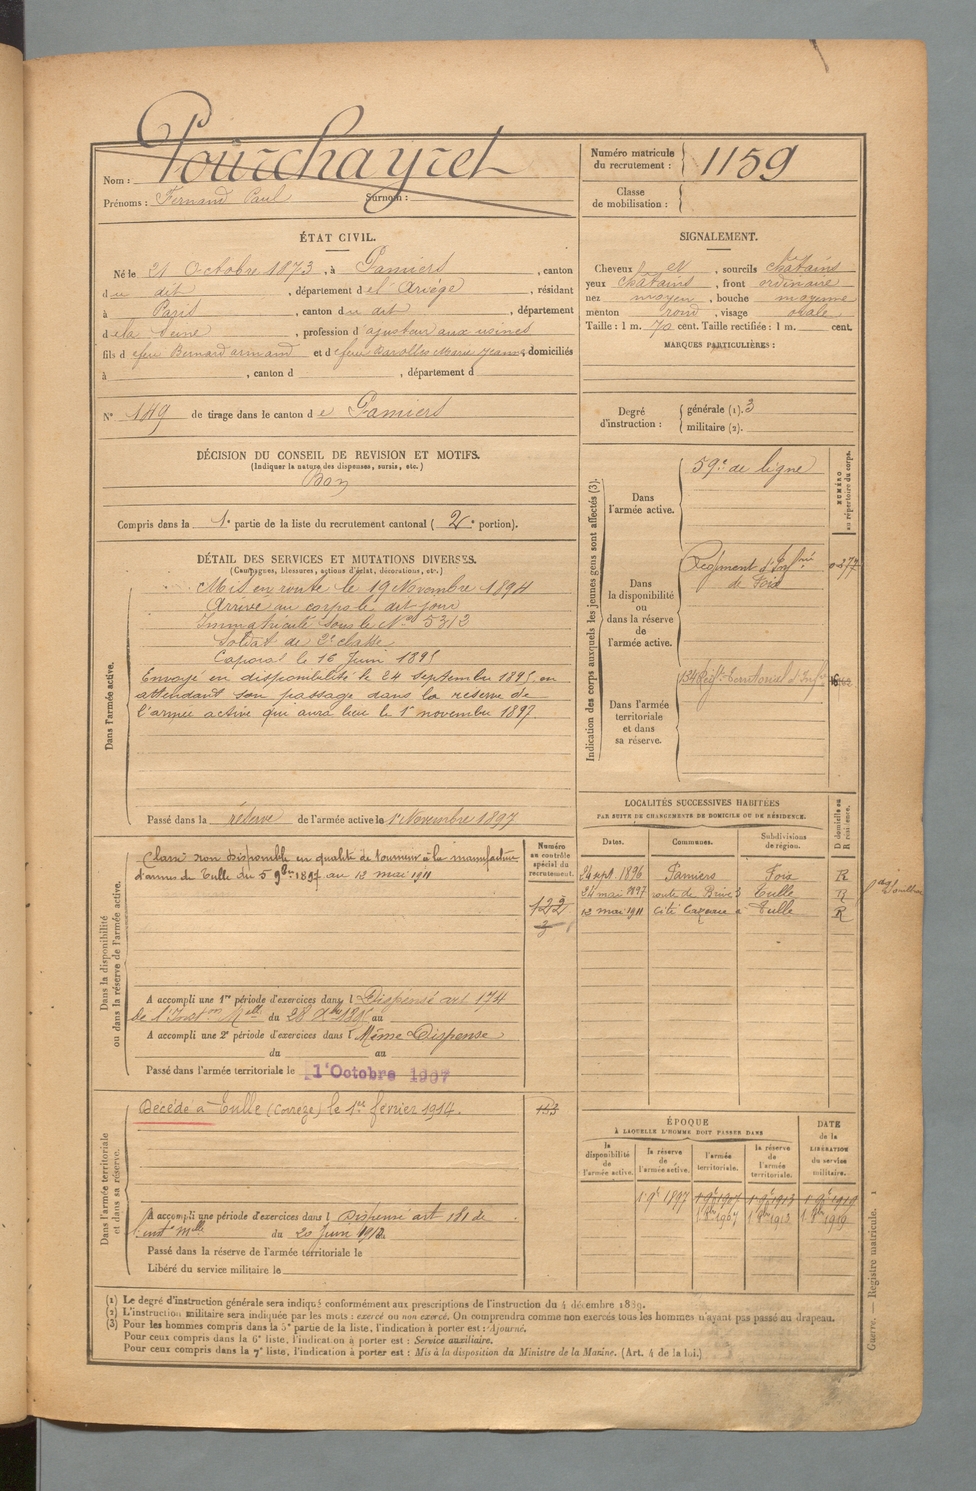 Nom : Pourchayret
Prénoms : Fernand Paul Surnom :
Numéro matricule du recrutement : 1159
Classe de mobilisation :
ÉTAT CIVIL.
Né le 21 Octobre 1873, à Pamiers, canton
du dit, département de l'Ariège, résidant
à Paris, canton du dit, département
de la Seine, profession d'ajusteur aux usines
fils de feu Bernard armand et de feue Barolles Marie Jeanne, domiciliés
à , canton d , département d
N° 149 de tirage dans le canton de Pamiers
SIGNALEMENT.
Cheveux et, sourcils châtains
yeux châtains, front ordinaire
nez moyen, bouche moyenne
menton rond, visage ovale
Taille : 1 m. 70 cent. Taille rectifiée : 1 m. cent.
MARQUES PARTICULIÈRES :
Degré d'instruction : générale (1). 3
militaire (2).
DÉCISION DU CONSEIL DE REVISION ET MOTIFS.
(Indiquer la nature des dispenses, sursis, etc.)
Bon
Compris dans la 1e partie de la liste du recrutement cantonal (2e portion).
DÉTAIL DES SERVICES ET MUTATIONS DIVERSES.
(Campagnes, blessures, actions d'éclat, décorations, etc.)
Dans l'armée active.
Mis en route le 19 Novembre 1894
Arrivé au corps le dit jour
Immatriculé sous le No 5313
Soldat de 2e classe
Caporal le 16 Juin 1895
Envoyé en disponibilité le 24 septembre 1895 en
attendant son passage dans la réserve de
l'armée active qui aura lieu le 1er novembre 1897.
Passé dans la réserve de l'armée active le 1er Novembre 1897
Indication des corps auxquels les jeunes gens sont affectés (3).
NUMÉRO au répertoire du corps.
Dans l'armée active.
59e de ligne
Dans la disponibilité ou dans la réserve de l'armée active.
Régiment d'Infrie
de Foix
Dans l'armée territoriale et dans sa réserve.
134 Regt territorial d'Infie
Dans la disponibilité ou dans la réserve de l'armée active.
Numéro au contrôle spécial du recrutement.
Classé non disponible en qualité de tourneur à la manufacture
d'armes de Tulle du 5 9bre 1897 au 12 mai 1911
122
A accompli une 1re période d'exercices dans l Dispensé art 174
de l'Inston Melle du 28 Xbre 1895 au
A accompli une 2e période d'exercices dans l Même Dispense
du au
Passé dans l'armée territoriale le 1er Octobre 1907
LOCALITÉS SUCCESSIVES HABITÉES
PAR SUITE DE CHANGEMENTS DE DOMICILE OU DE RÉSIDENCE.
D domicile ou R résidence.
Dates. Communes. Subdivisions de région.
24 sept. 1896 Pamiers Foix R
24 mai 1897 route de Brive 3 Tulle R
12 mai 1911 Cité Cazeau à Tulle R
Dans l'armée territoriale et dans sa réserve.
Décédé à Tulle (Corrèze) le 1er février 1914.
113
A accompli une période d'exercices dans l Dispensé art 181 de
l'inst Melle du 20 Juin 1910.
Passé dans la réserve de l'armée territoriale le
Libéré du service militaire le
ÉPOQUE
À LAQUELLE L'HOMME DOIT PASSER DANS
DATE de la LIBÉRATION du service militaire.
la disponibilité de l'armée active. la réserve de l'armée active. l'armée territoriale. la réserve de l'armée territoriale.
1er 9e 1897 1er 9e 1907 1er 9e 1913 1er 9e 1919
1 8bre 1907 1 8bre 1913 1 8bre 1919
(1) Le degré d'instruction générale sera indiqué conformément aux prescriptions de l'instruction du 4 décembre 1889.
(2) L'instruction militaire sera indiquée par les mots : exercé ou non exercé. On comprendra comme non exercés tous les hommes n'ayant pas passé au drapeau.
(3) Pour les hommes compris dans la 5e partie de la liste, l'indication à porter est : Ajourné.
Pour ceux compris dans la 6e liste, l'indication à porter est : Service auxiliaire.
Pour ceux compris dans la 7e liste, l'indication à porter est : Mis à la disposition du Ministre de la Marine. (Art. 4 de la loi.)
Guerre. — Registre matricule. 1